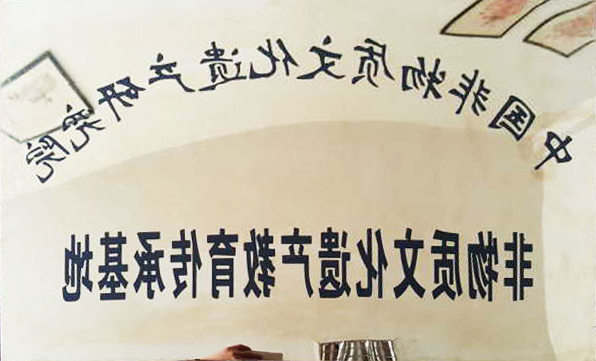 中国非物质文化遗产研究院
非物质文化遗产教育传承基地